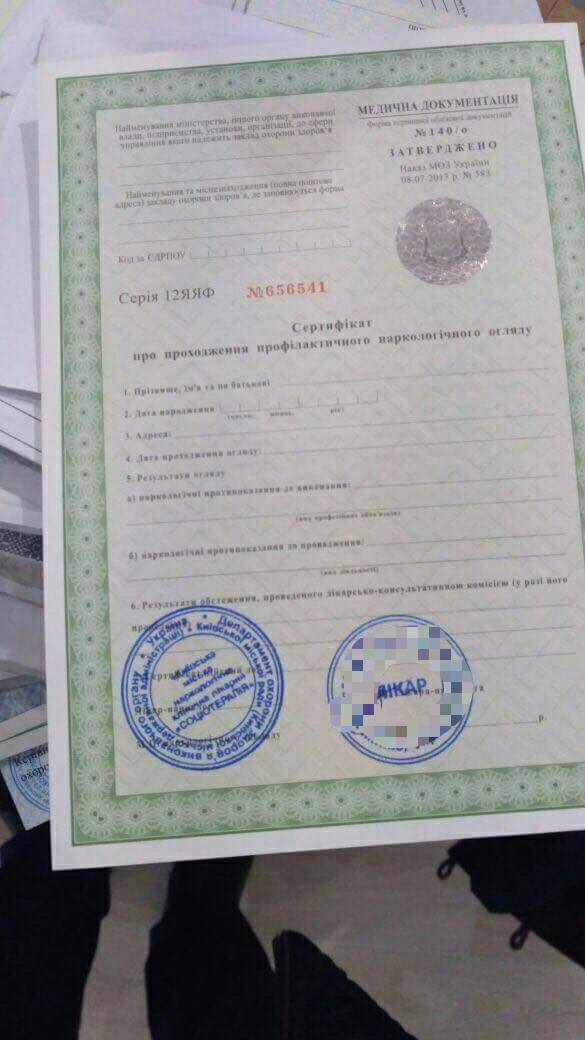 Найменування міністерства, іншого органу виконавчої
влади, підприємства, установи, організації, до сфери
управління якого належить заклад охорони здоров'я
Найменування та місцезнаходження (повна поштова
адреса) закладу охорони здоров'я, де заповнюється форма
Код за ЄДРПОУ
МЕДИЧНА ДОКУМЕНТАЦІЯ
форма первинної облікової документації
№140/о
ЗАТВЕРДЖЕНО
Наказ МОЗ України
08.07.2013 р. № 583
Серія 12ЯЯФ №656541
Сертифікат
про проходження профілактичного наркологічного огляду
1. Прізвище, ім'я та по батькові
2. Дата народження
(число, місяць, рік)
3. Адреса:
4. Дата проходження огляду:
5. Результати огляду
а) наркологічні протипоказання до виконання:
(вид професійних обов'язків)
б) наркологічні протипоказання до провадження:
(вид діяльності)
6. Результати обстеження, проведеного лікарсько-консультативною комісією (у разі його
р.
Україна
Департамент охорони
Київської міської ради
Київська
міська
наркологічна
клінічна лікарня
«СОЦІОТЕРАПІЯ»
ЛІКАР